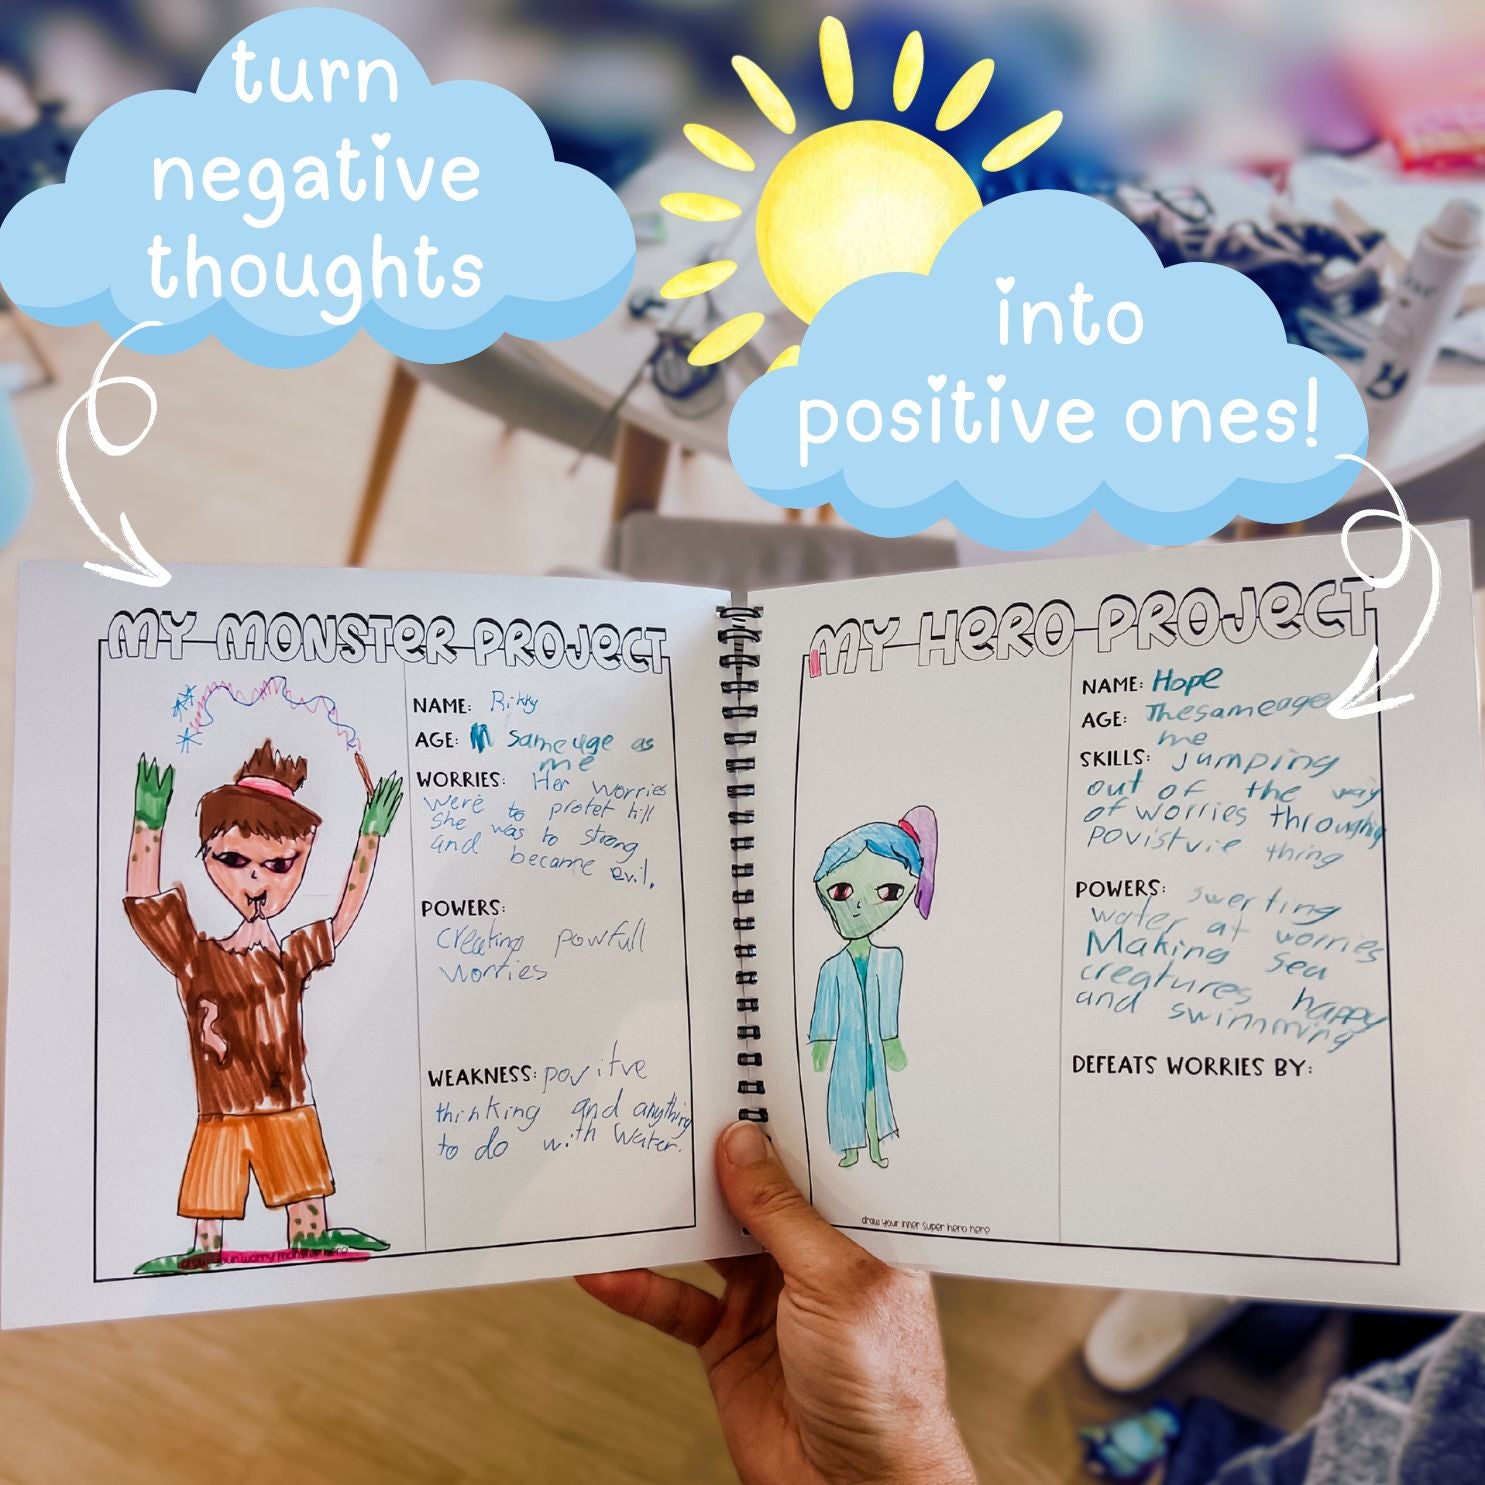 turn
negative
thoughts
into
positive ones!
MY MONSTER PROJECT
NAME: Rikky
AGE: same age as
me
WORRIES: Her worries
were to protet till
she was to strong
and became evil.
POWERS:
Creating powfull
worries
WEAKNESS: povitve
thinking and anything
to do with water.
draw your worry monster here
MY HERO PROJECT
NAME: Hope
AGE: The same age
me
SKILLS: jumping
out of the way
of worries throughy
povistvie thing
POWERS: swerting
water at worries
Making sea
creatures happy
and swimming
DEFEATS WORRIES BY:
draw your inner super hero here